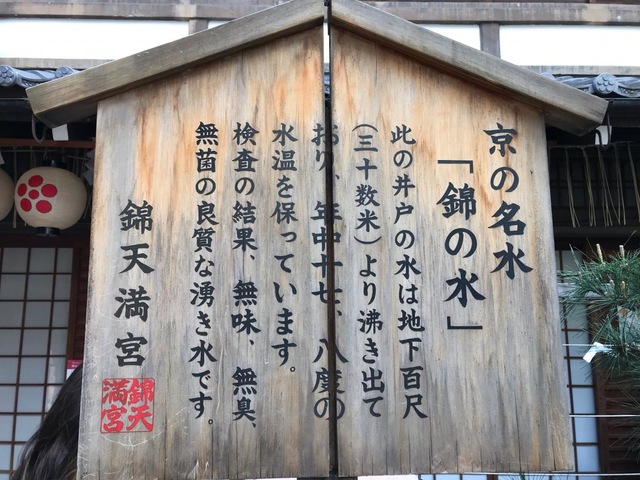 京の名水
「錦の水」
此の井戸の水は地下百尺
(三十数米)より沸き出て
おり、年中十七、八度の
水温を保っています。
検査の結果、無味、無臭、
無菌の良質な湧き水です。
錦天満宮
錦天
満宮